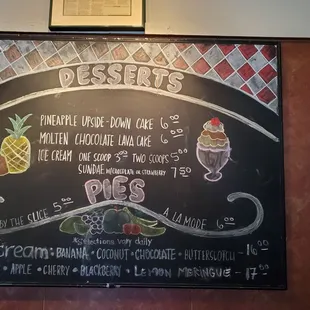 DESSERTS
PINEAPPLE UPSIDE-DOWN CAKE 6.18
MOLTEN CHOCOLATE LAVA CAKE 6.00
ICE CREAM ONE SCOOP 3.00 TWO SCOOPS 5.00
SUNDAE W/CHOCOLATE OR STRAWBERRY 7.50
PIES
BY THE SLICE 5.00 A LA MODE 6.00
*Selections vary daily
CREAM: BANANA • COCONUT • CHOCOLATE • BUTTERSCOTCH - 16.00
APPLE • CHERRY • BLACKBERRY • LEMON MERINGUE - 17.00